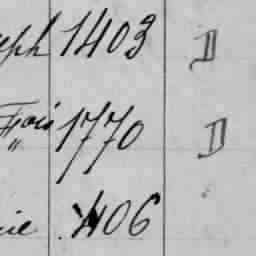 eph 1403 D
Fçois 1770 D
" 
ie 406